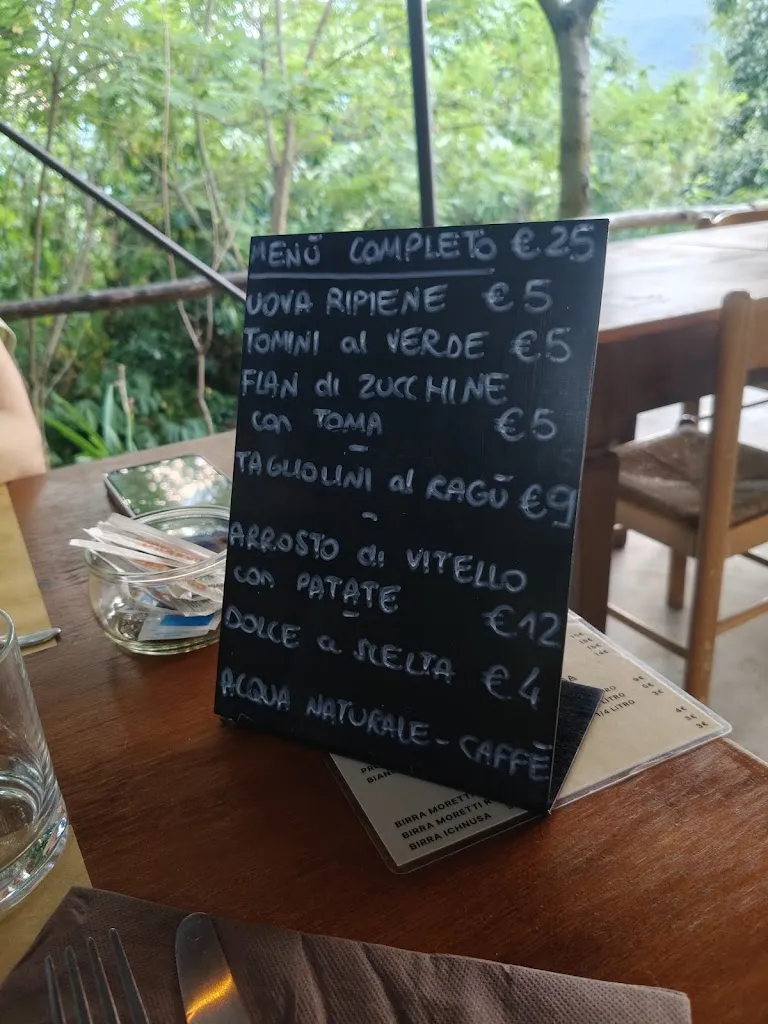 MENÙ COMPLETO €25
UOVA RIPIENE €5
TOMINI al VERDE €5
FLAN di ZUCCHINE
con TOMA €5
-
TAGLIOLINI al RAGÙ €9
-
ARROSTO di VITELLO
con PATATE €12
-
DOLCE a SCELTA €4
ACQUA NATURALE - CAFFÈ
LITRO
1/4 LITRO
BIRRA MORETTI
BIRRA MORETTI
BIRRA ICHNUSA